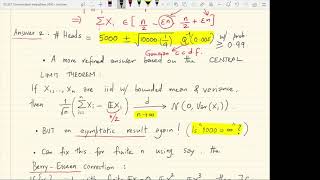 ⇒ Σ Xᵢ ∈ [ n/2 − εn , n/2 + εn ]
Answer 2 : # Heads = 5000 ± √(10000 (1/4)) Q⁻¹(0.005) w/ prob ≥ 0.99
Gaussian c.c.d.f.
• A more refined answer based on the CENTRAL
LIMIT THEOREM :
If X₁,..., Xₙ are iid w/ bounded mean & variance,
then 1/√n ( Σ Xᵢ − EXᵢ ) →d N (0, Var(Xᵢ))
i=1
n/2
n→∞
• BUT an asymptotic result again ! ( Is "1000 = ∞" ? )
• Can fix this for finite n using say the
Berry-Esseen correction :